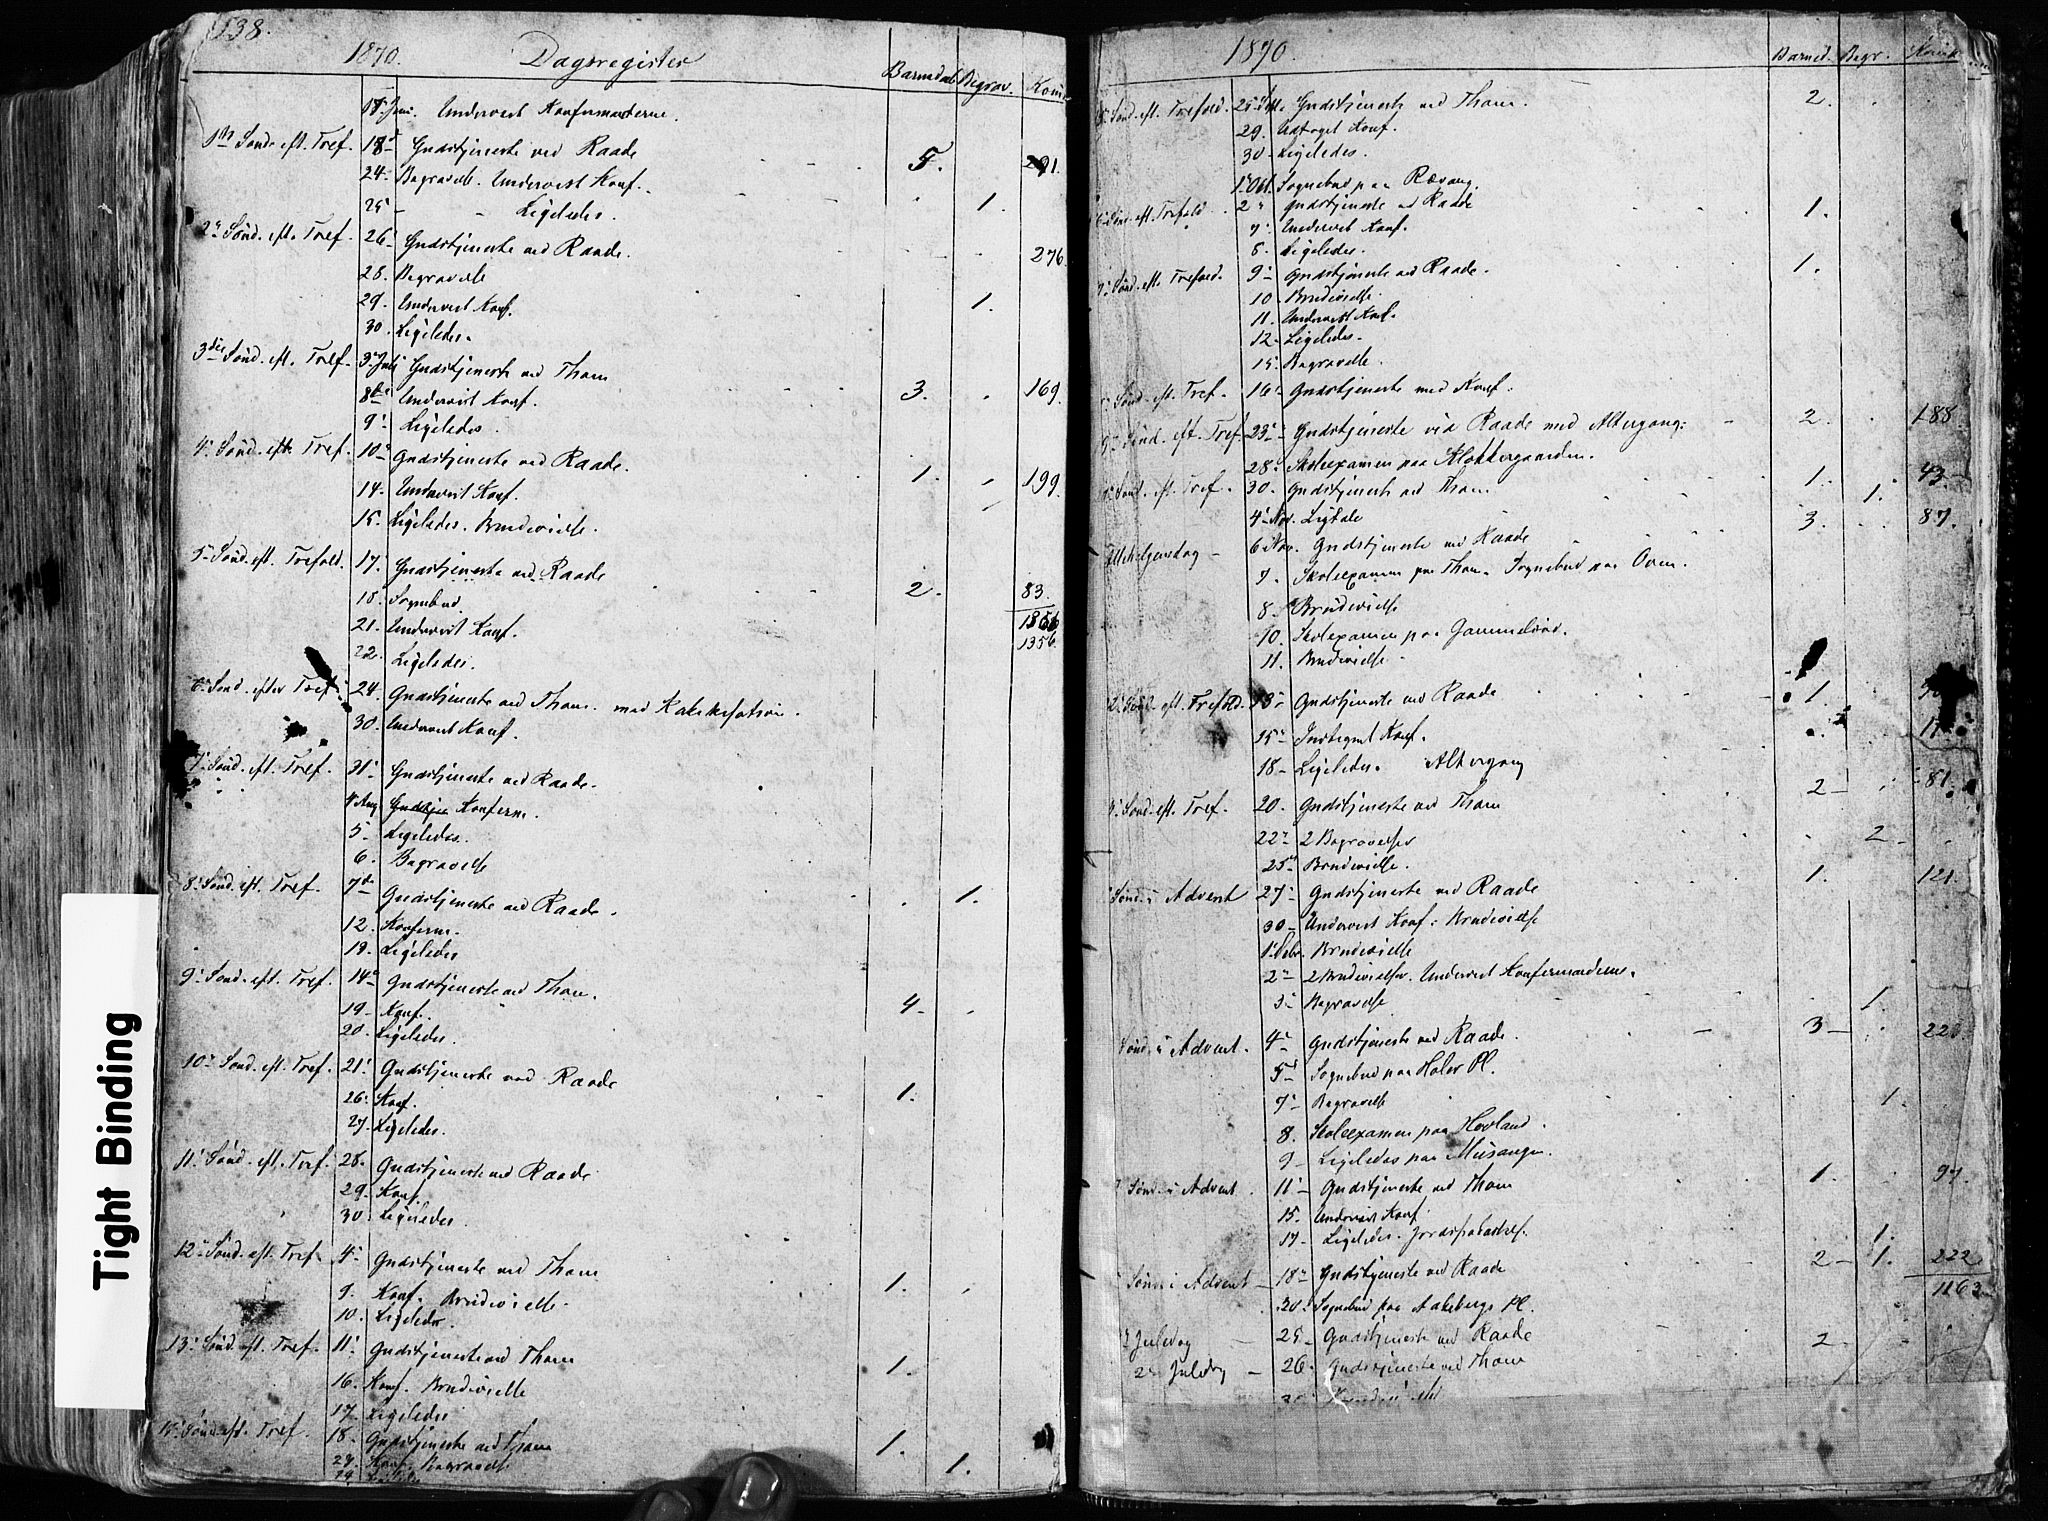 138.
1870. Dagsregister Barnedaab Begrav. Kom
17 Juni. Undervist Konfirmanterne.
1ste Sönd. eft. Tref. 18 Gudstjeneste ved Raade 5. 291.
24. Begravelse. Undervist Konf.
25 - - Ligeledes. 1.
2. Sönd. eft. Tref. 26 Gudstjeneste ved Raade. 276.
28. Begravelse
29. Undervist Konf. 1.
30. Ligeledes.
3die Sönd. eft. Tref. 3 Juli Gudstjeneste ved Thom
8de Undervist Konf. 3. 169.
9 Ligeledes.
4. Sönd. eft. Tref. 10 Gudstjeneste ved Raade. 1. 199.
14. Undervist Konf.
15. Ligeledes. Brudevielse.
5 Sönd. eft. Trefold. 17. Gudstjeneste ved Raade 2. 83.
18. Sognebud. 1356
21. Undervist Konf. 1356.
22. Ligeledes.
6 Sönd. efter Tref. 24. Gudstjeneste ved Thom. med Katekisation.
30. Undervist Konf.
7 Sönd. eft. Tref. 31. Gudstjeneste ved Raade.
4 Aug. Gudstjen Konfirm.
5 Ligeledes.
6. Begravelse
8. Sönd. eft. Tref. 7de Gudstjeneste ved Raade. 1.
12. Konfirm.
13. Ligeledes
9. Sönd. eft. Tref. 14 Gudstjeneste ved Thom.
19. Konf. 4.
20. Ligeledes.
10. Sönd. eft. Tref. 21. Gudstjeneste ved Raade
26. Konf. 1.
27. Ligeledes.
11. Sönd. eft. Tref. 28. Gudstjeneste ved Raade
29. Konf.
30. Ligeledes.
12. Sönd. eft. Tref. 4. Gudstjeneste ved Thom
9. Konf. Brudevielse. 1.
10. Ligeledes.
13. Sönd. eft. Tref. 11. Gudstjeneste ved Thom 1.
16. Konf. Brudevielse
17. Ligeledes
Sönd. eft. Tref. 18. Gudstjeneste ved Thom 1.
Konf. Begravelse 1.
1870. Barned. Begr. Kom
Sönd. eft. Trefold. 25 Gudstjeneste ved Thom. 2.
29. Konf.
30. Ligeledes.
1 Okt. Sognebud paa
Sönd. eft. Trefold. 2 Gudstjeneste ved Raade 1.
7. Undervist Konf.
8. Ligeledes.
Sönd. eft. Trefold. 9. Gudstjeneste ved Raade. 1.
10. Brudevielse.
11. Undervist Konf.
12. Ligeledes.
15. Begravelse.
Sönd. eft. Tref. 16. Gudstjeneste med Konf.
Sönd. eft. Tref. 23. Gudstjeneste ved Raade med Altergang. 2. 188.
28. Skoleexamen paa Klokkergaarden.
Sönd. eft. Tref. 30. Gudstjeneste ved Thom 1. 43.
4 Nov. Ligtale 1.
Allehelgensdag 6 Nov. Gudstjeneste ved Raade 3. 87.
7. Skoleexamen paa Thom. Sognebud paa
8. Brudevielse
10. Skoleexamen paa
11. Brudevielse
Sönd. eft. Trefold. 13. Gudstjeneste ved Raade 1.
15. Konf.
18. Ligeledes. Altergang
Sönd. eft. Tref. 20. Gudstjeneste ved Thom 2 81.
22. 2 Begravelser 2
25. Brudevielse.
Sönd. i Advent 27. Gudstjeneste ved Raade 1. 121.
30. Undervist Konf. Brudevielse
1. Brudevielse
2. 2 Brudevielser. Undervist Konfirmanderne.
3. Begravelse 1.
Sönd. i Advent. 4. Gudstjeneste ved Raade. 3 220.
5. Sognebud paa Pl.
7. Begravelse 1.
8. Skoleexamen paa Hovland.
9. Ligeledes paa
Sönd. i Advent. 11. Gudstjeneste ved Thom 1. 97.
15. Undervist Konf.
17. Ligeledes. Jordspaakastelse. 1.
Sönd. i Advent 18. Gudstjeneste ved Raade 2 1. 222
20. Sognebud paa Pl. 1163
Juledag 25. Gudstjeneste ved Raade 2
2. Juledag 26. Gudstjeneste ved Thom
Tight Binding